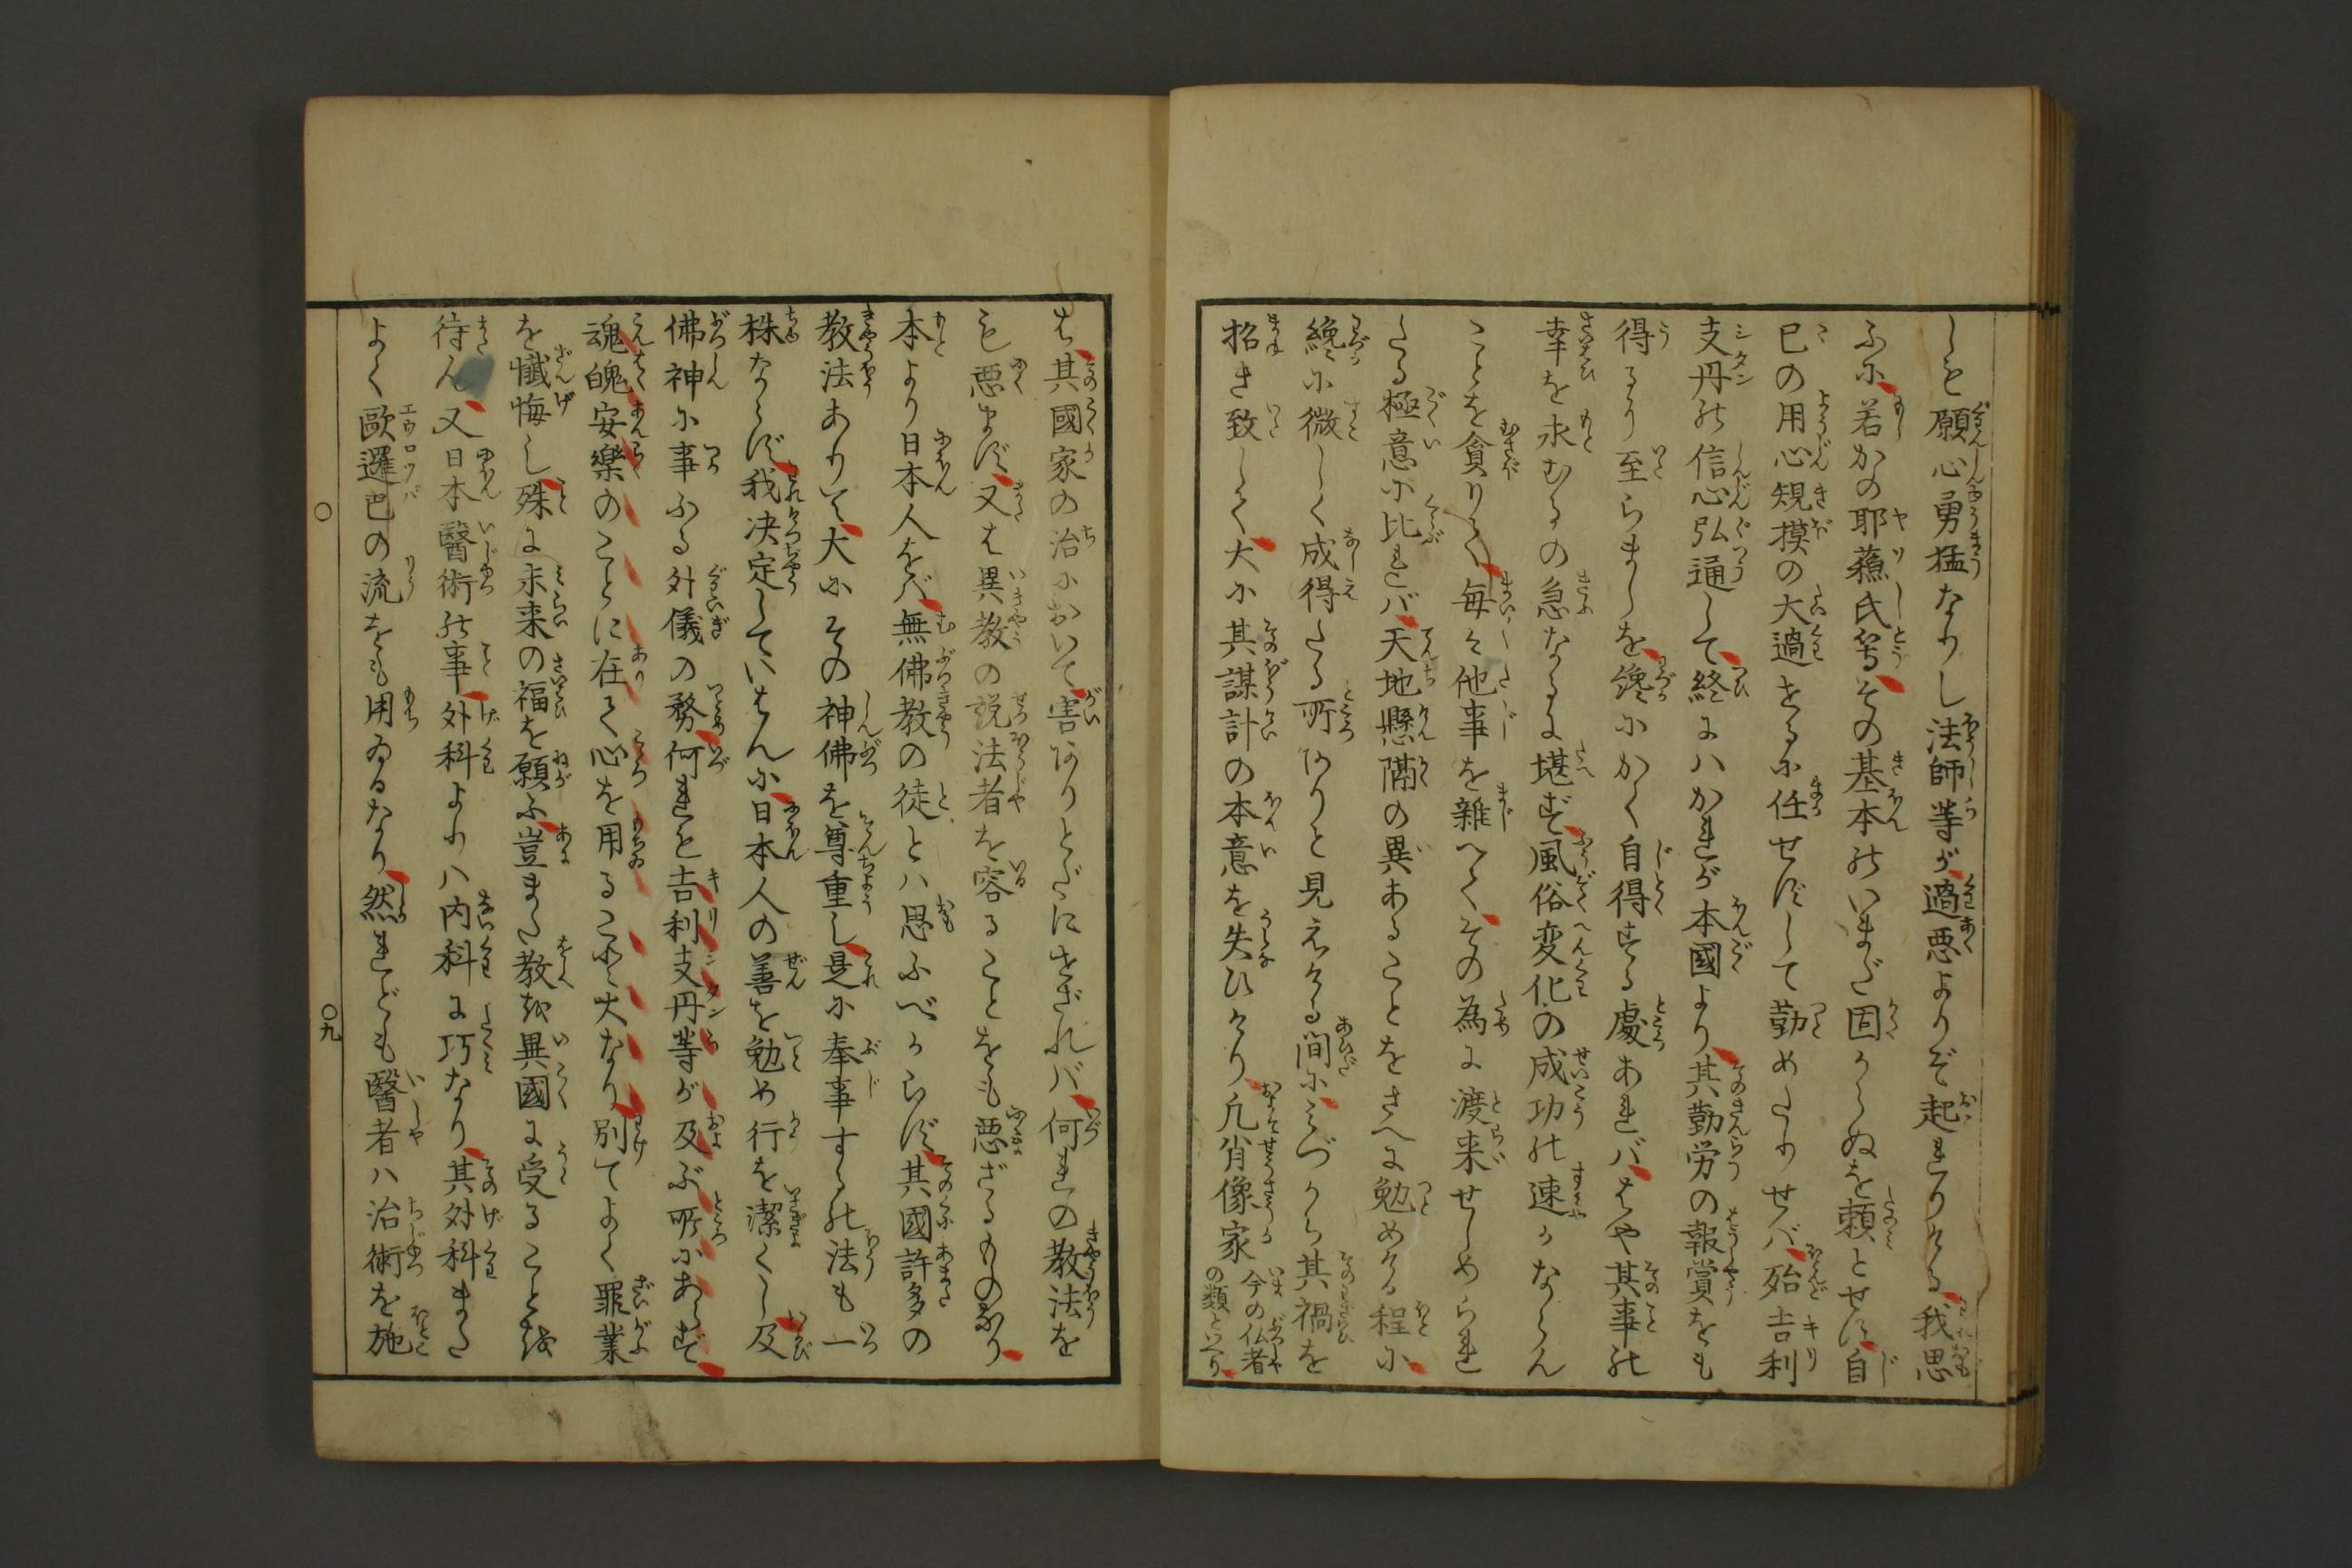 しも願心勇猛なりし法師等が過悪よりぞ起れりける我思
ふに若かの耶蘓氏等その基本のいまだ固からぬを頼とせず自
己の用心規摸の大過をるに任せずして勤めたりせバ殆吉利
支丹の信心弘通して終にハかれが本國より其勤労の報賞をも
得るり至らましを纔にかく自得せる處あれバはや其事の
幸を求むるの急なるに堪ず風俗変化の成功の速かならん
ことを貪りて毎々他事を雜へてその為に渡来せしめられ
たる極意に比れバ天地懸隔の異あることをさへに勉めける程に
纔に微しく成得たる所ありと見えける間にみづから其禍を
招き致して大に其謀計の本意を失ひけり凢肖像家今の仏者の類といへり
は其國家の治において害ありとだにせざれバ何れの教法を
も悪まず又は異教の説法者を容ることをも悪ざるものなり
本より日本人をバ無佛教の徒とハ思ふべからず其國許多の
教法ありて大にその神佛を尊重し是に奉事するの法も一
株ならず我决定していはんに日本人の善を勉め行を潔くし及
佛神に事ふる外儀の務何れも吉利支丹等が及ぶ所にあらず
魂魄安樂のことに在て心を用ること大なり別てよく罪業
を懺悔し殊に未来の福を願ふ豈また教を異國に受ることを
待ん又日本醫術の事外科よりハ内科に巧なり其外科また
よく歐邏巴の流をも用ゐるなり然れども醫者ハ治術を施
〇九